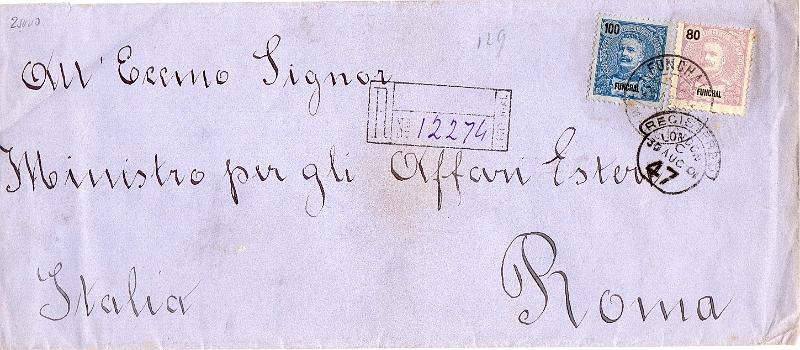 129
100
80
FUNCHAL
FUNCHAL
FUNCHAL
All' Eccmo Signor
12274
REGISTERED
LONDON
C
30 AUG 01
47
Ministro per gli Affari Esteri
Italia
Roma